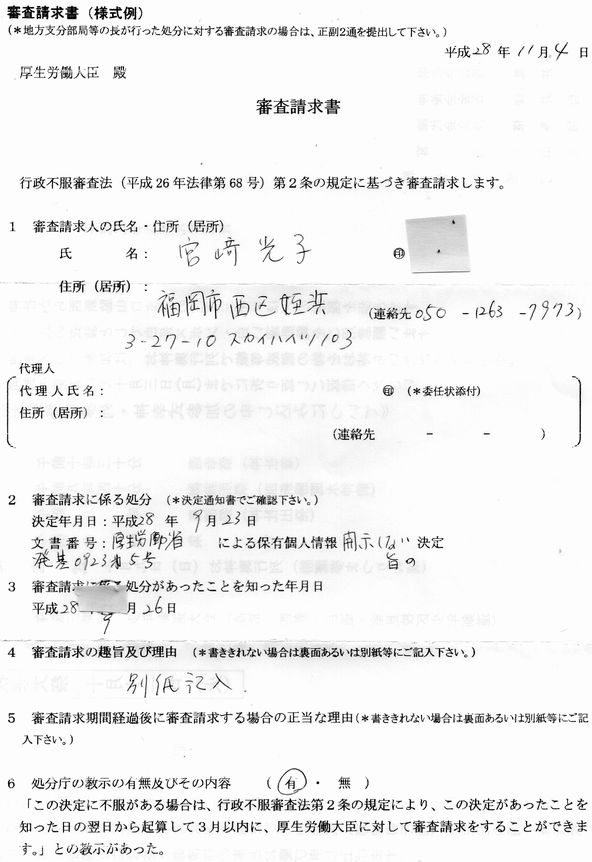 審査請求書（様式例）
（＊地方支分部局等の長が行った処分に対する審査請求の場合は、正副2通を提出して下さい。）
平成28年11月4日
厚生労働大臣　殿
審査請求書
行政不服審査法（平成26年法律第68号）第2条の規定に基づき審査請求します。
1　審査請求人の氏名・住所（居所）
氏　　名：　宮﨑光子　㊞
住所（居所）：
福岡市西区姪浜　（連絡先050－1263－7973）
3-27-10 スカイハイツ103
代理人
代理人氏名：　㊞　（＊委任状添付）
住所（居所）：
（連絡先　　－　　－　　）
2　審査請求に係る処分　（＊決定通知書でご確認下さい。）
決定年月日：平成28年9月23日
文書番号：厚生労働省　による保有個人情報　開示しない　決定
発基0923第5号　旨の
3　審査請求に　処分があったことを知った年月日
平成28　9月26日
4　審査請求の趣旨及び理由　（＊書ききれない場合は裏面あるいは別紙等にご記入下さい。）
別紙記入
5　審査請求期間経過後に審査請求する場合の正当な理由（＊書ききれない場合は裏面あるいは別紙等にご記
入下さい。）
6　処分庁の教示の有無及びその内容　　（　有　・　無　）
「この決定に不服がある場合は、行政不服審査法第2条の規定により、この決定があったことを
知った日の翌日から起算して3月以内に、厚生労働大臣に対して審査請求をすることができま
す。」との教示があった。